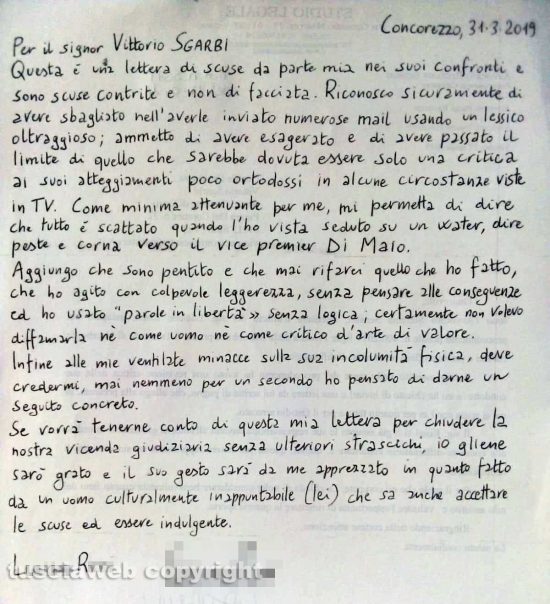 Concorezzo, 31.3.2019
Per il signor Vittorio SGARBI
Questa è una lettera di scuse da parte mia nei suoi confronti e
sono scuse contrite e non di facciata. Riconosco sicuramente di
avere sbagliato nell'averle inviato numerose mail usando un lessico
oltraggioso; ammetto di avere esagerato e di avere passato il
limite di quello che sarebbe dovuta essere solo una critica
ai suoi atteggiamenti poco ortodossi in alcune circostanze viste
in TV. Come minima attenuante per me, mi permetta di dire
che tutto è scattato quando l'ho vista seduto su un water, dire
peste e corna verso il vice premier Di Maio.
Aggiungo che sono pentito e che mai rifarei quello che ho fatto,
che ho agito con colpevole leggerezza, senza pensare alle conseguenze
ed ho usato "parole in libertà" senza logica; certamente non volevo
diffamarla nè come uomo nè come critico d'arte di valore.
Infine alle mie ventilate minacce sulla sua incolumità fisica, deve
credermi, mai nemmeno per un secondo ho pensato di darne un
seguito concreto.
Se vorrà tenerne conto di questa mia lettera per chiudere la
nostra vicenda giudiziaria senza ulteriori strascichi, io gliene
sarò grato e il suo gesto sarà da me apprezzato in quanto fatto
da un uomo culturalmente inappuntabile (lei) che sa anche accettare
le scuse ed essere indulgente.
tusciaweb copyright